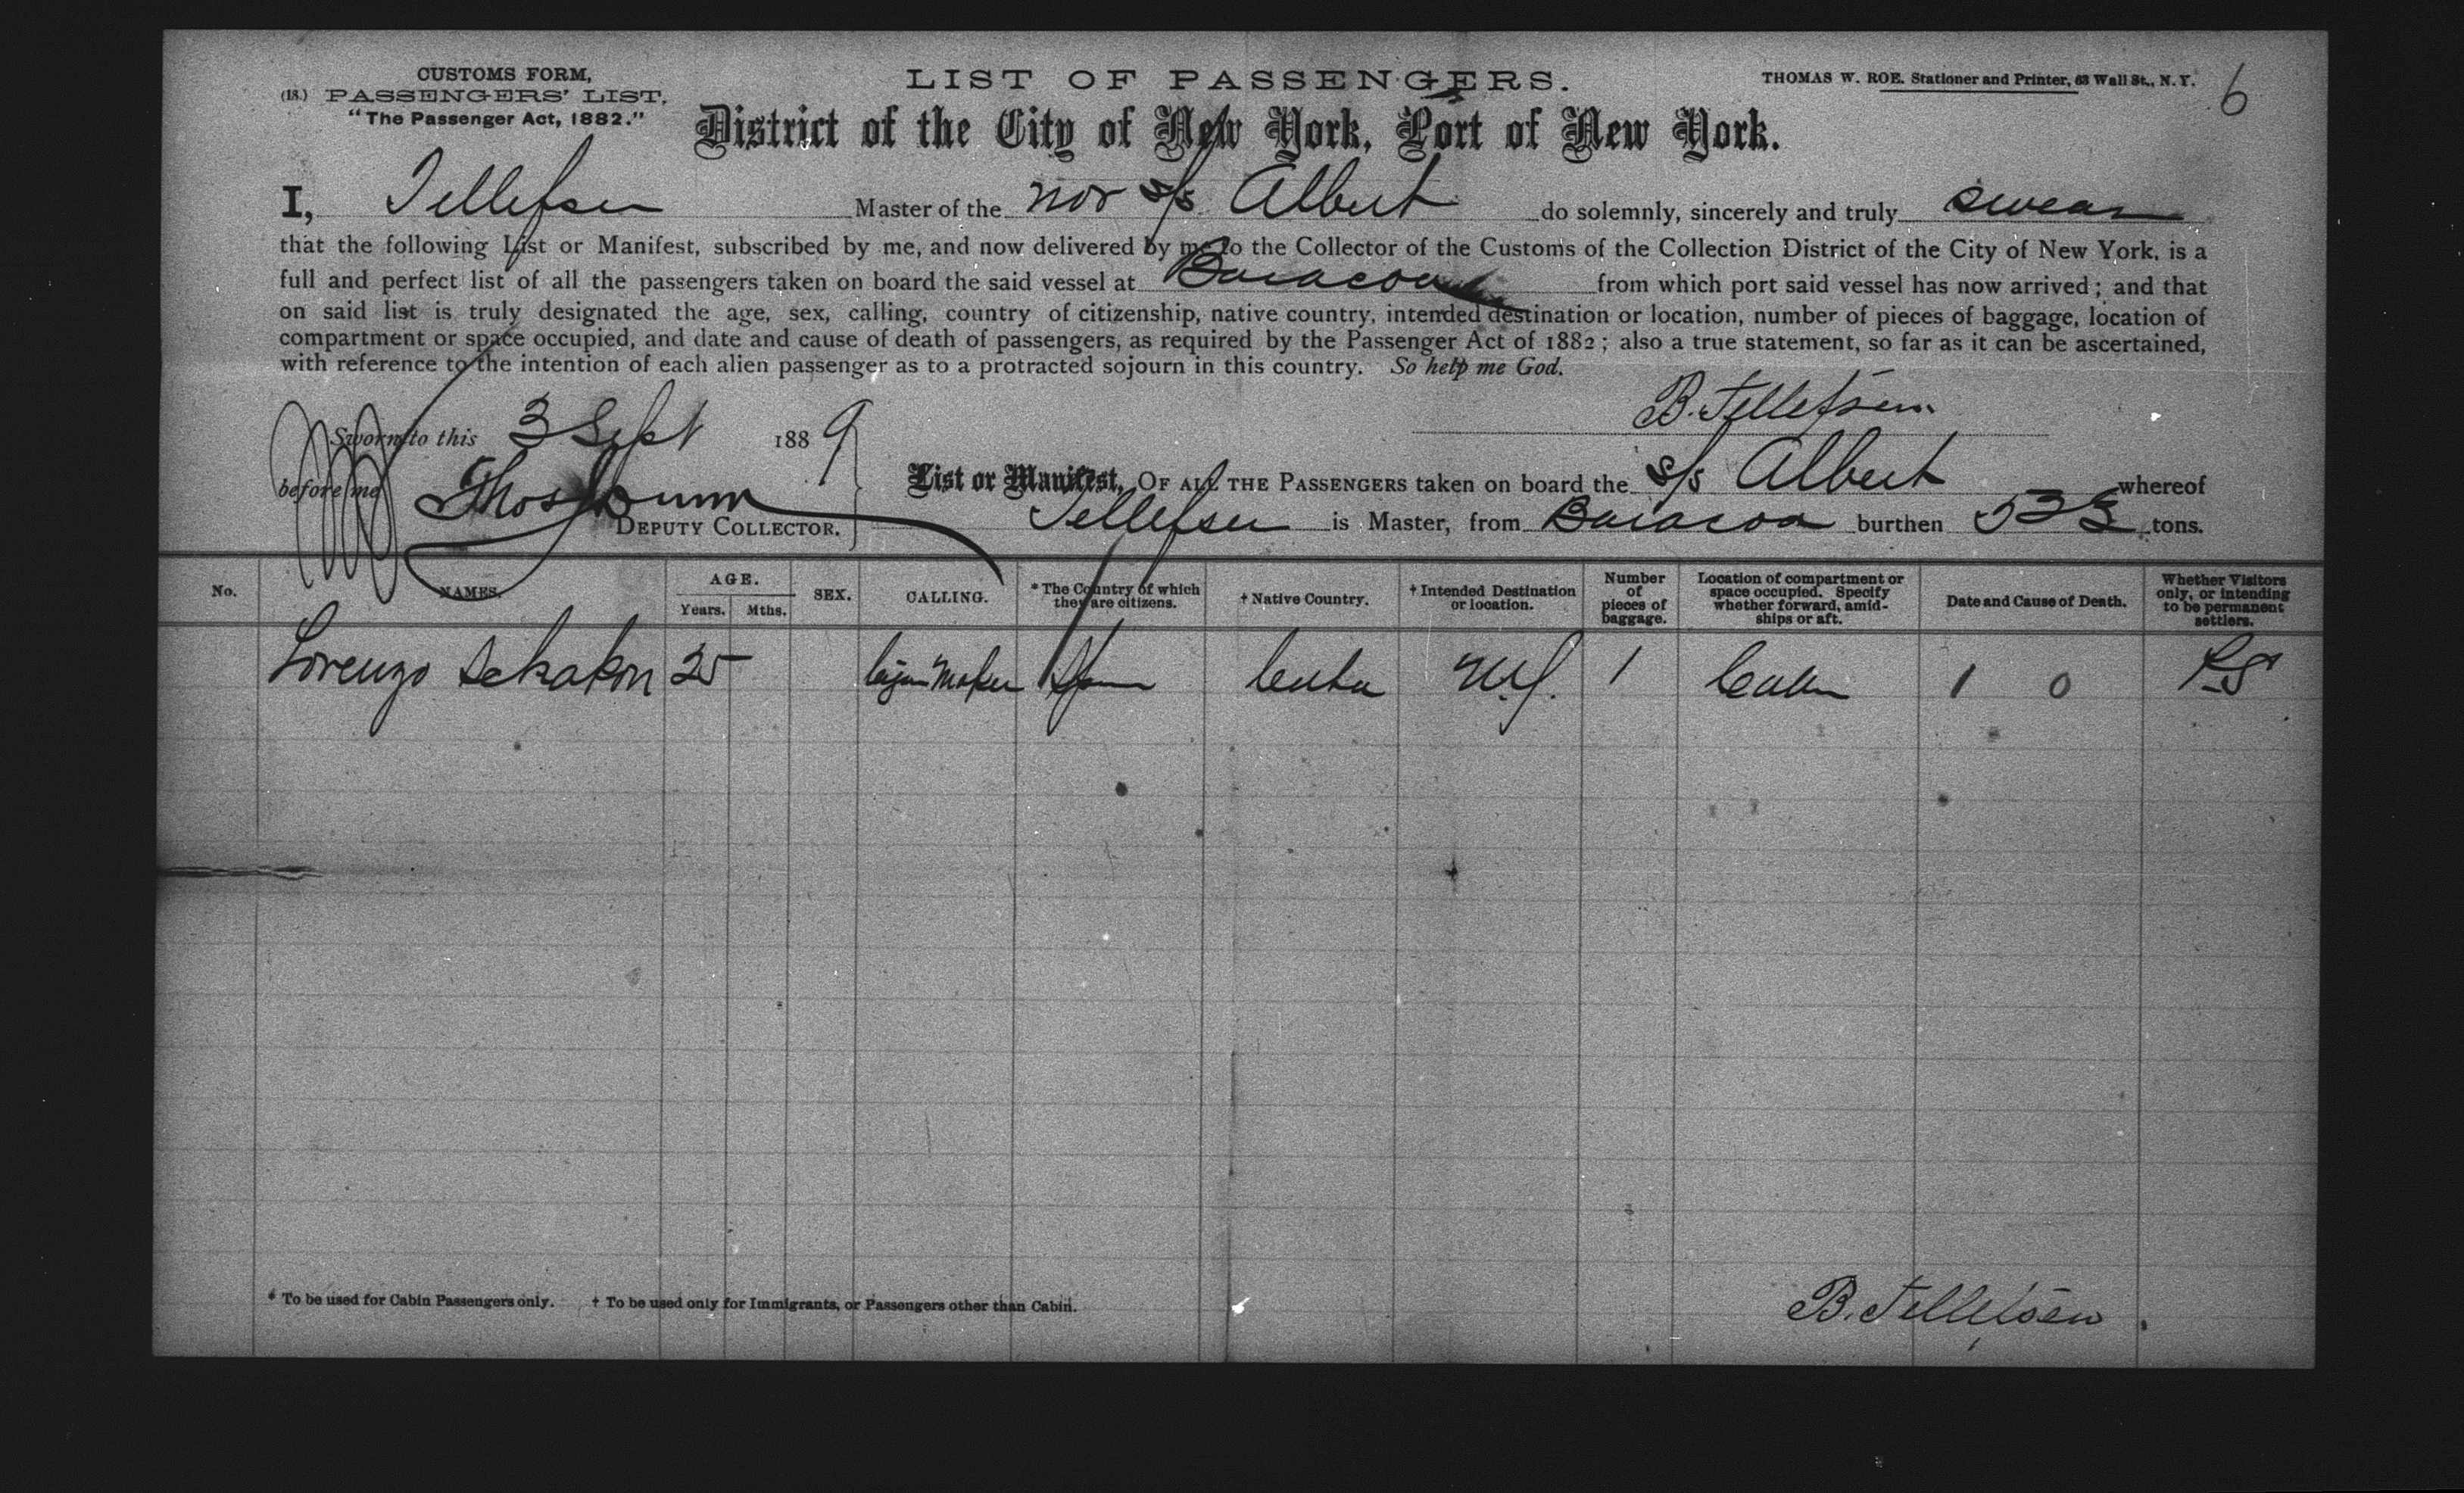 CUSTOMS FORM,
(18.) PASSENGERS' LIST.
"The Passenger Act, 1882."
LIST OF PASSENGERS.
THOMAS W. ROE. Stationer and Printer, 63 Wall St., N.Y.
6
District of the City of New York, Port of New York.
I, Tellefsen Master of the Nor s/s Albert do solemnly, sincerely and truly swear
that the following List or Manifest, subscribed by me, and now delivered by me to the Collector of the Customs of the Collection District of the City of New York, is a
full and perfect list of all the passengers taken on board the said vessel at Baracoa from which port said vessel has now arrived; and that
on said list is truly designated the age, sex, calling, country of citizenship, native country, intended destination or location, number of pieces of baggage, location of
compartment or space occupied, and date and cause of death of passengers, as required by the Passenger Act of 1882; also a true statement, so far as it can be ascertained,
with reference to the intention of each alien passenger as to a protracted sojourn in this country. So help me God.
B. Tellefsen.
Sworn to this 3 Sept 1889
before me Thos Dunn
DEPUTY COLLECTOR.
List or Manifest, OF ALL THE PASSENGERS taken on board the s/s Albert whereof
Tellefsen is Master, from Baracoa burthen 533 tons.
No. NAMES. AGE. Years. Mths. SEX. CALLING. * The Country of which they are citizens. † Native Country. † Intended Destination or location. Number of pieces of baggage. Location of compartment or space occupied. Specify whether forward, amidships or aft. Date and Cause of Death. Whether Visitors only, or intending to be permanent settlers.
Lorenzo 25 Cigar Maker Spain Cuba N.Y. 1 Cabin 1 0 P.S
* To be used for Cabin Passengers only. † To be used only for Immigrants, or Passengers other than Cabin.
B. Tellefsen